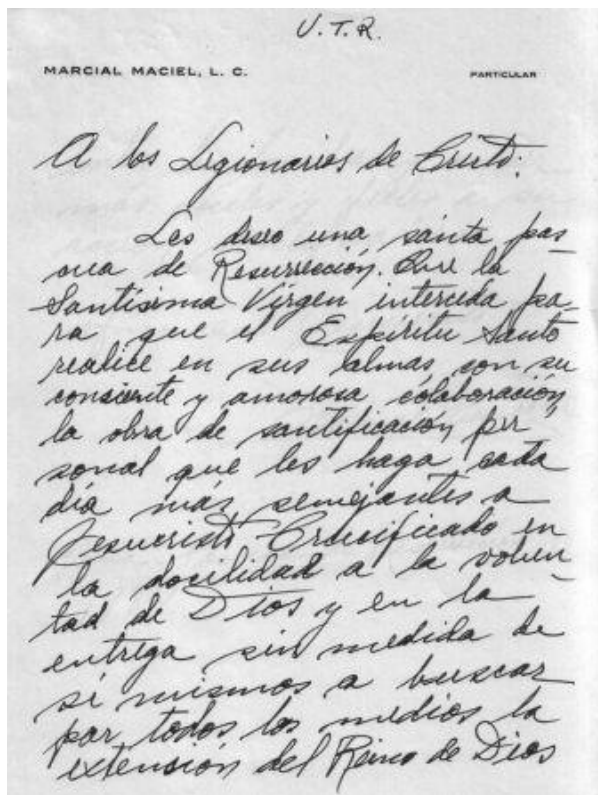 U.T.R.
MARCIAL MACIEL, L. C. PARTICULAR
A los Legionarios de Cristo:
Les deseo una santa pas
cua de Resurrección. Que la
Santísima Virgen interceda pa-
ra que el Espíritu Santo
realice en sus almas, con su
consiente y amorosa colaboración,
la obra de santificación per
sonal que les haga cada
día más semejantes a
Jesucristo Crucificado en
la docilidad a la volun
tad de Dios y en la
entrega sin medida de
sí mismos a buscar
por todos los medios la
extensión del Reino de Dios